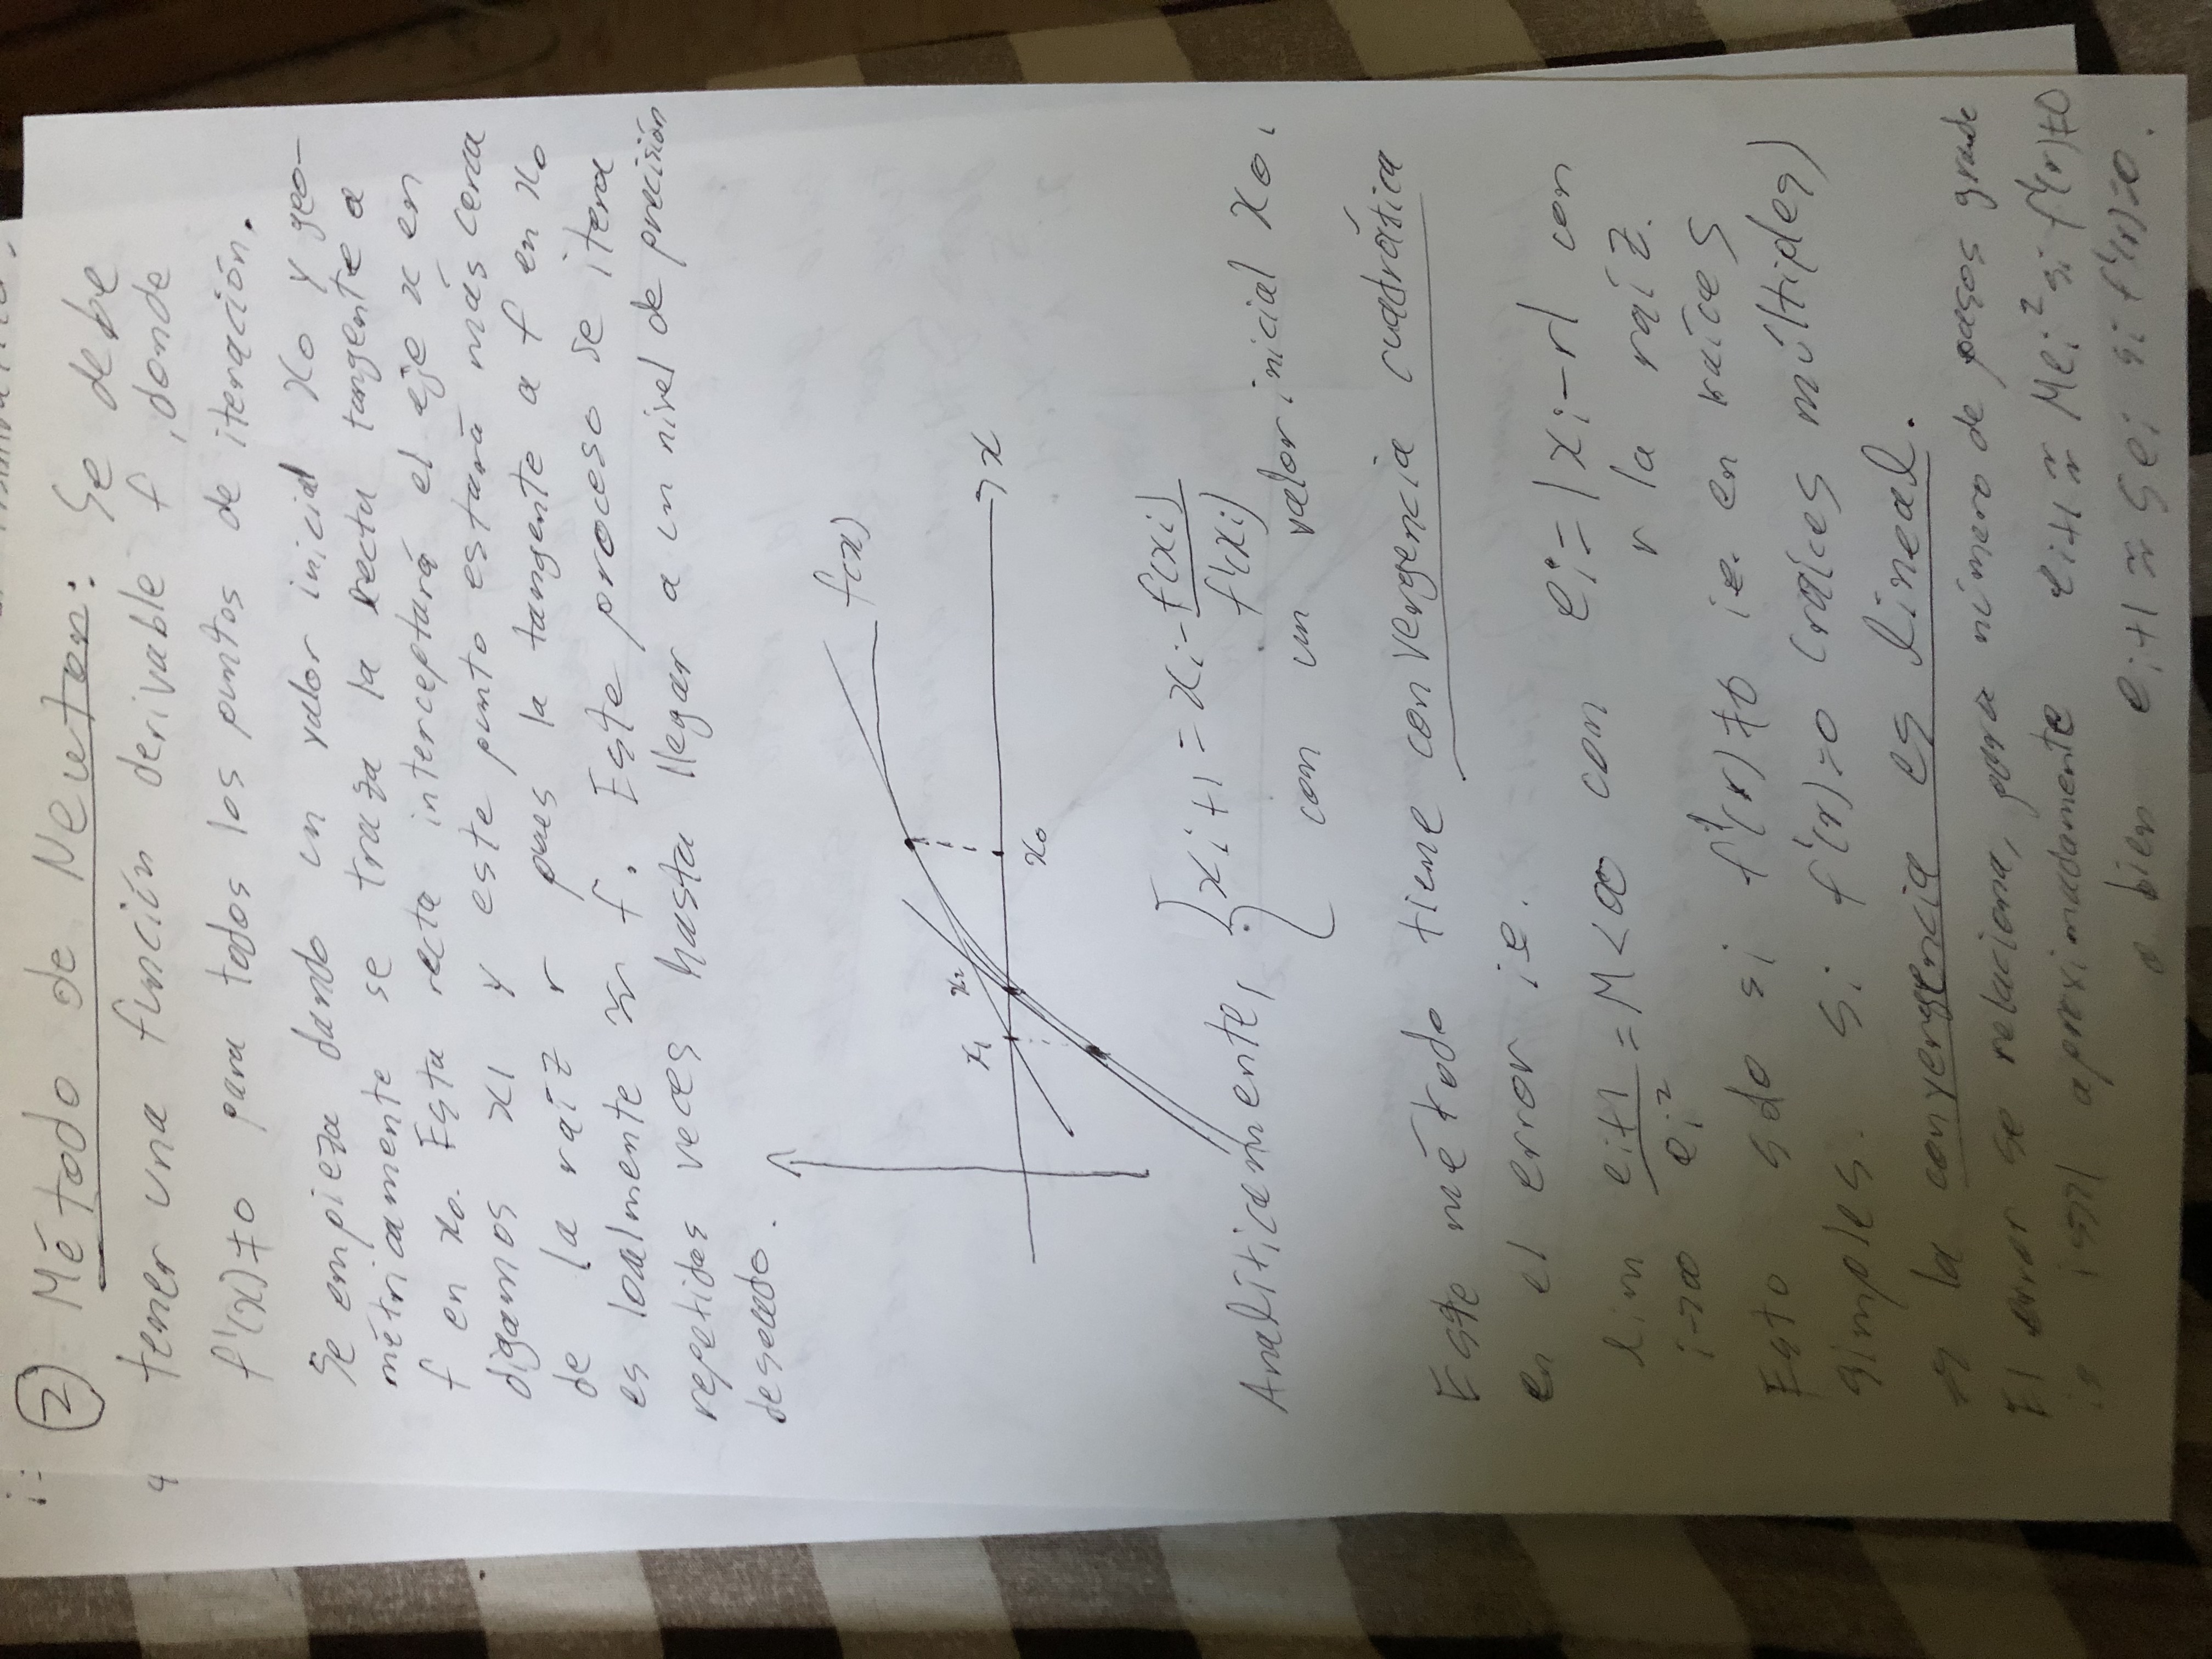 i=
② Método de Newton: Se debe
4 tener una función derivable f, donde
f'(x)≠0 para todos los puntos de iteración.
Se empieza dando un valor inicial x0 y geo-
métricamente se traza la recta tangente a
f en x0. Esta recta interceptará el eje x en
digamos x1 y este punto estará más cerca
de la raíz r pues la tangente a f en x0
es localmente ≈ f. Este proceso se itera
repetidas veces hasta llegar a un nivel de precisión
deseado.
f(x)
x1 x2
x
x0
Analíticamente, { xi+1 = xi - f(xi)/f'(xi)
con un valor inicial x0.
Este método tiene convergencia cuadrática
en el error ie.
lim i→∞ ei+1/ei² = M<∞ con ei=|xi-r| con
r la raíz.
Esto solo si f'(r)≠0 ie. en raíces
simples. Si f'(r)=0 (raíces múltiples)
⇒ la convergencia es lineal.
El error se relaciona, para número de pasos grande
ie i>>1 aproximadamente ei+1 ≈ Mei² si f'(r)≠0
o bien ei+1 ≈ Sei si f'(r)=0.